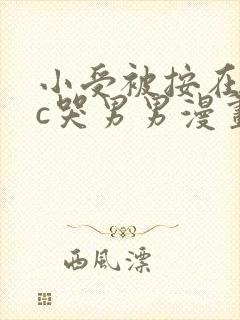 小受被按在
c哭男男漫畫
西風漂